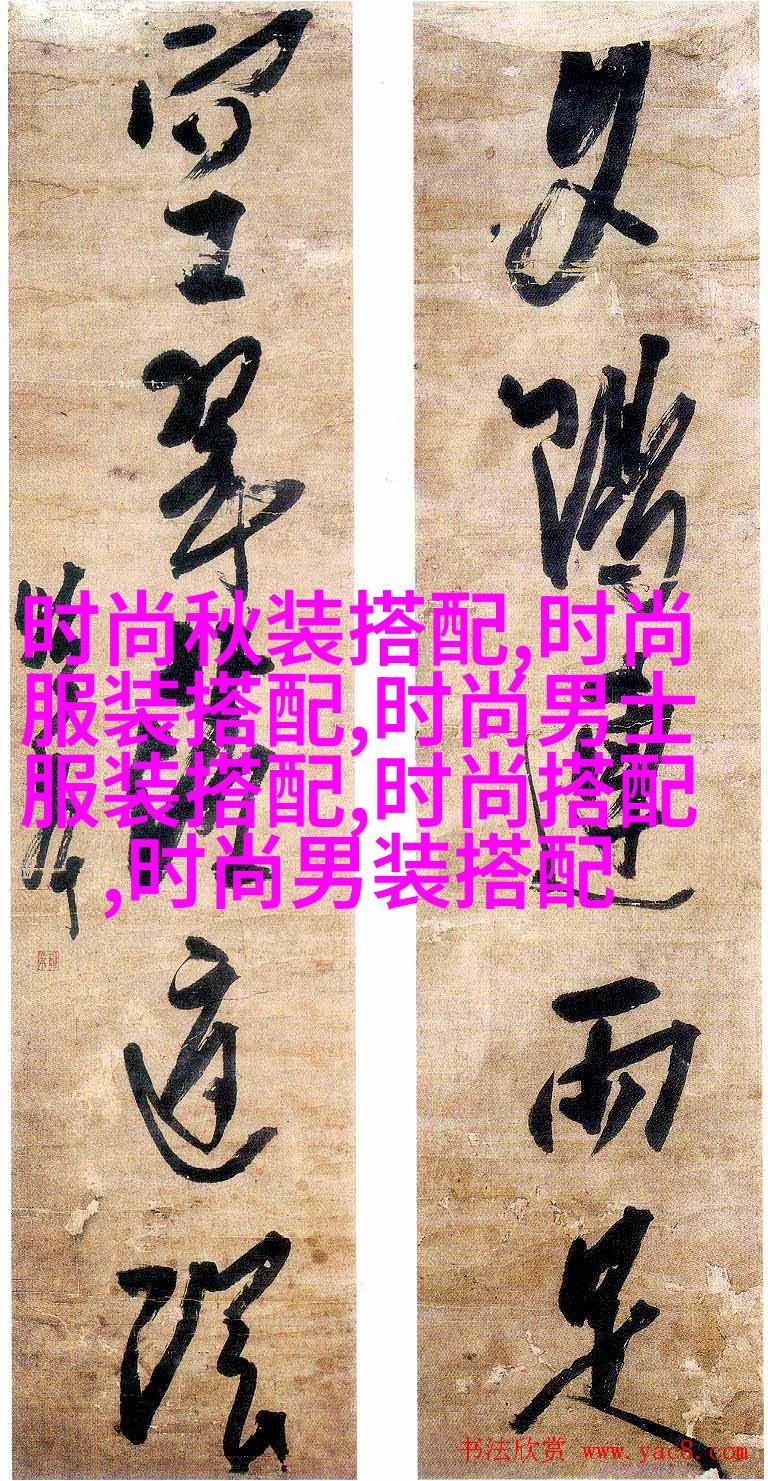 夕陽連雨足
空翠落庭陰
时尚秋装搭配,时尚
服装搭配,时尚男士
服装搭配,时尚搭配
,时尚男装搭配
书法欣赏 www.yac8.com